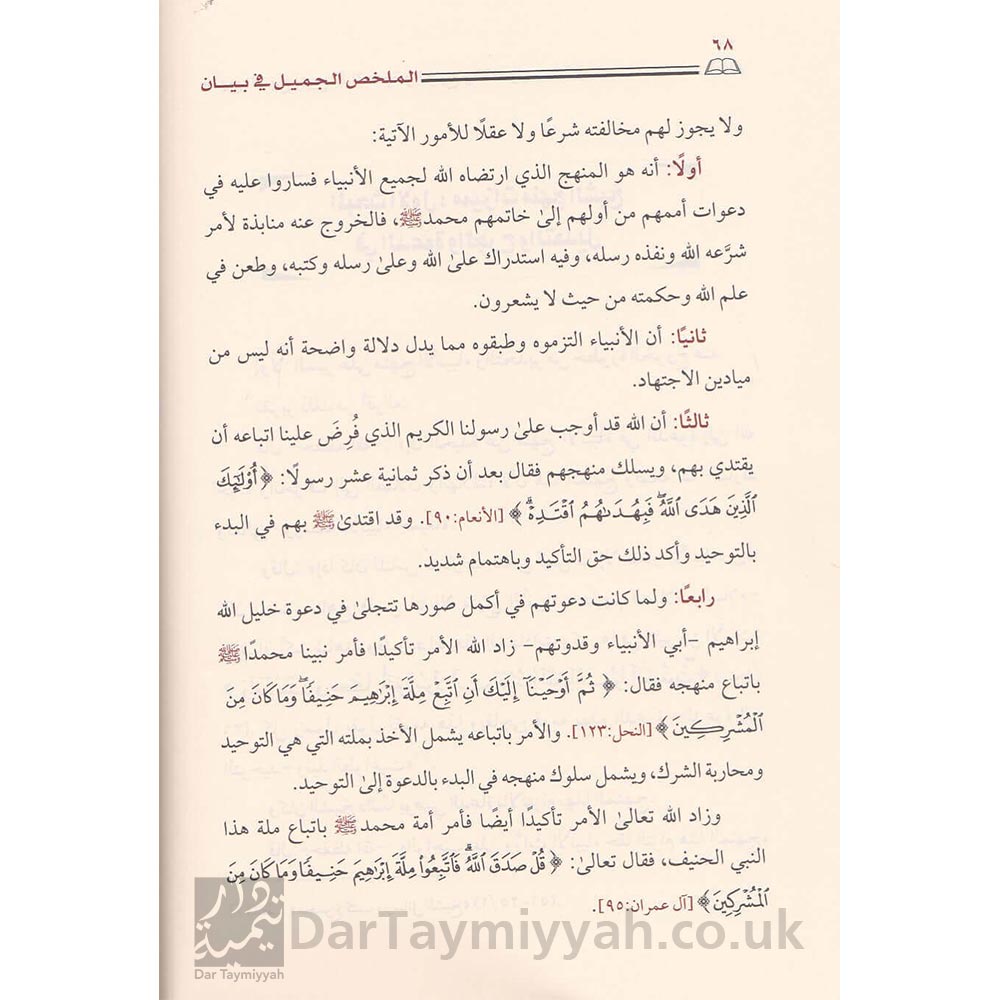 ٦٨
الملخص الجميل في بيان
ولا يجوز لهم مخالفته شرعًا ولا عقلًا للأمور الآتية:
أولًا: أنه هو المنهج الذي ارتضاه الله لجميع الأنبياء فساروا عليه في
دعوات أممهم من أولهم إلىٰ خاتمهم محمد ﷺ، فالخروج عنه منابذة لأمر
شرَّعه الله ونفذه رسله، وفيه استدراك علىٰ الله وعلىٰ رسله وكتبه، وطعن في
علم الله وحكمته من حيث لا يشعرون.
ثانيًا: أن الأنبياء التزموه وطبقوه مما يدل دلالة واضحة أنه ليس من
ميادين الاجتهاد.
ثالثًا: أن الله قد أوجب علىٰ رسولنا الكريم الذي فُرِضَ علينا اتباعه أن
يقتدي بهم، ويسلك منهجهم فقال بعد أن ذكر ثمانية عشر رسولًا: ﴿أُوْلَٰٓئِكَ
ٱلَّذِينَ هَدَى ٱللَّهُۖ فَبِهُدَىٰهُمُ ٱقۡتَدِهۡۗ﴾ [الأنعام:٩٠]. وقد اقتدىٰ ﷺ بهم في البدء
بالتوحيد وأكد ذلك حق التأكيد وباهتمام شديد.
رابعًا: ولما كانت دعوتهم في أكمل صورها تتجلىٰ في دعوة خليل الله
إبراهيم -أبي الأنبياء وقدوتهم- زاد الله الأمر تأكيدًا فأمر نبينا محمدًا ﷺ
باتباع منهجه فقال: ﴿ثُمَّ أَوۡحَيۡنَآ إِلَيۡكَ أَنِ ٱتَّبِعۡ مِلَّةَ إِبۡرَٰهِيمَ حَنِيفٗاۖ وَمَا كَانَ مِنَ
ٱلۡمُشۡرِكِينَ﴾ [النحل:١٢٣]. والأمر باتباعه يشمل الأخذ بملته التي هي التوحيد
ومحاربة الشرك، ويشمل سلوك منهجه في البدء بالدعوة إلىٰ التوحيد.
وزاد الله تعالىٰ الأمر تأكيدًا أيضًا فأمر أمة محمد ﷺ باتباع ملة هذا
النبي الحنيف، فقال تعالىٰ: ﴿قُلۡ صَدَقَ ٱللَّهُۗ فَٱتَّبِعُواْ مِلَّةَ إِبۡرَٰهِيمَ حَنِيفٗا وَمَا كَانَ مِنَ
ٱلۡمُشۡرِكِينَ﴾ [آل عمران:٩٥].
دار تيمية
Dar Taymiyyah
DarTaymiyyah.co.uk